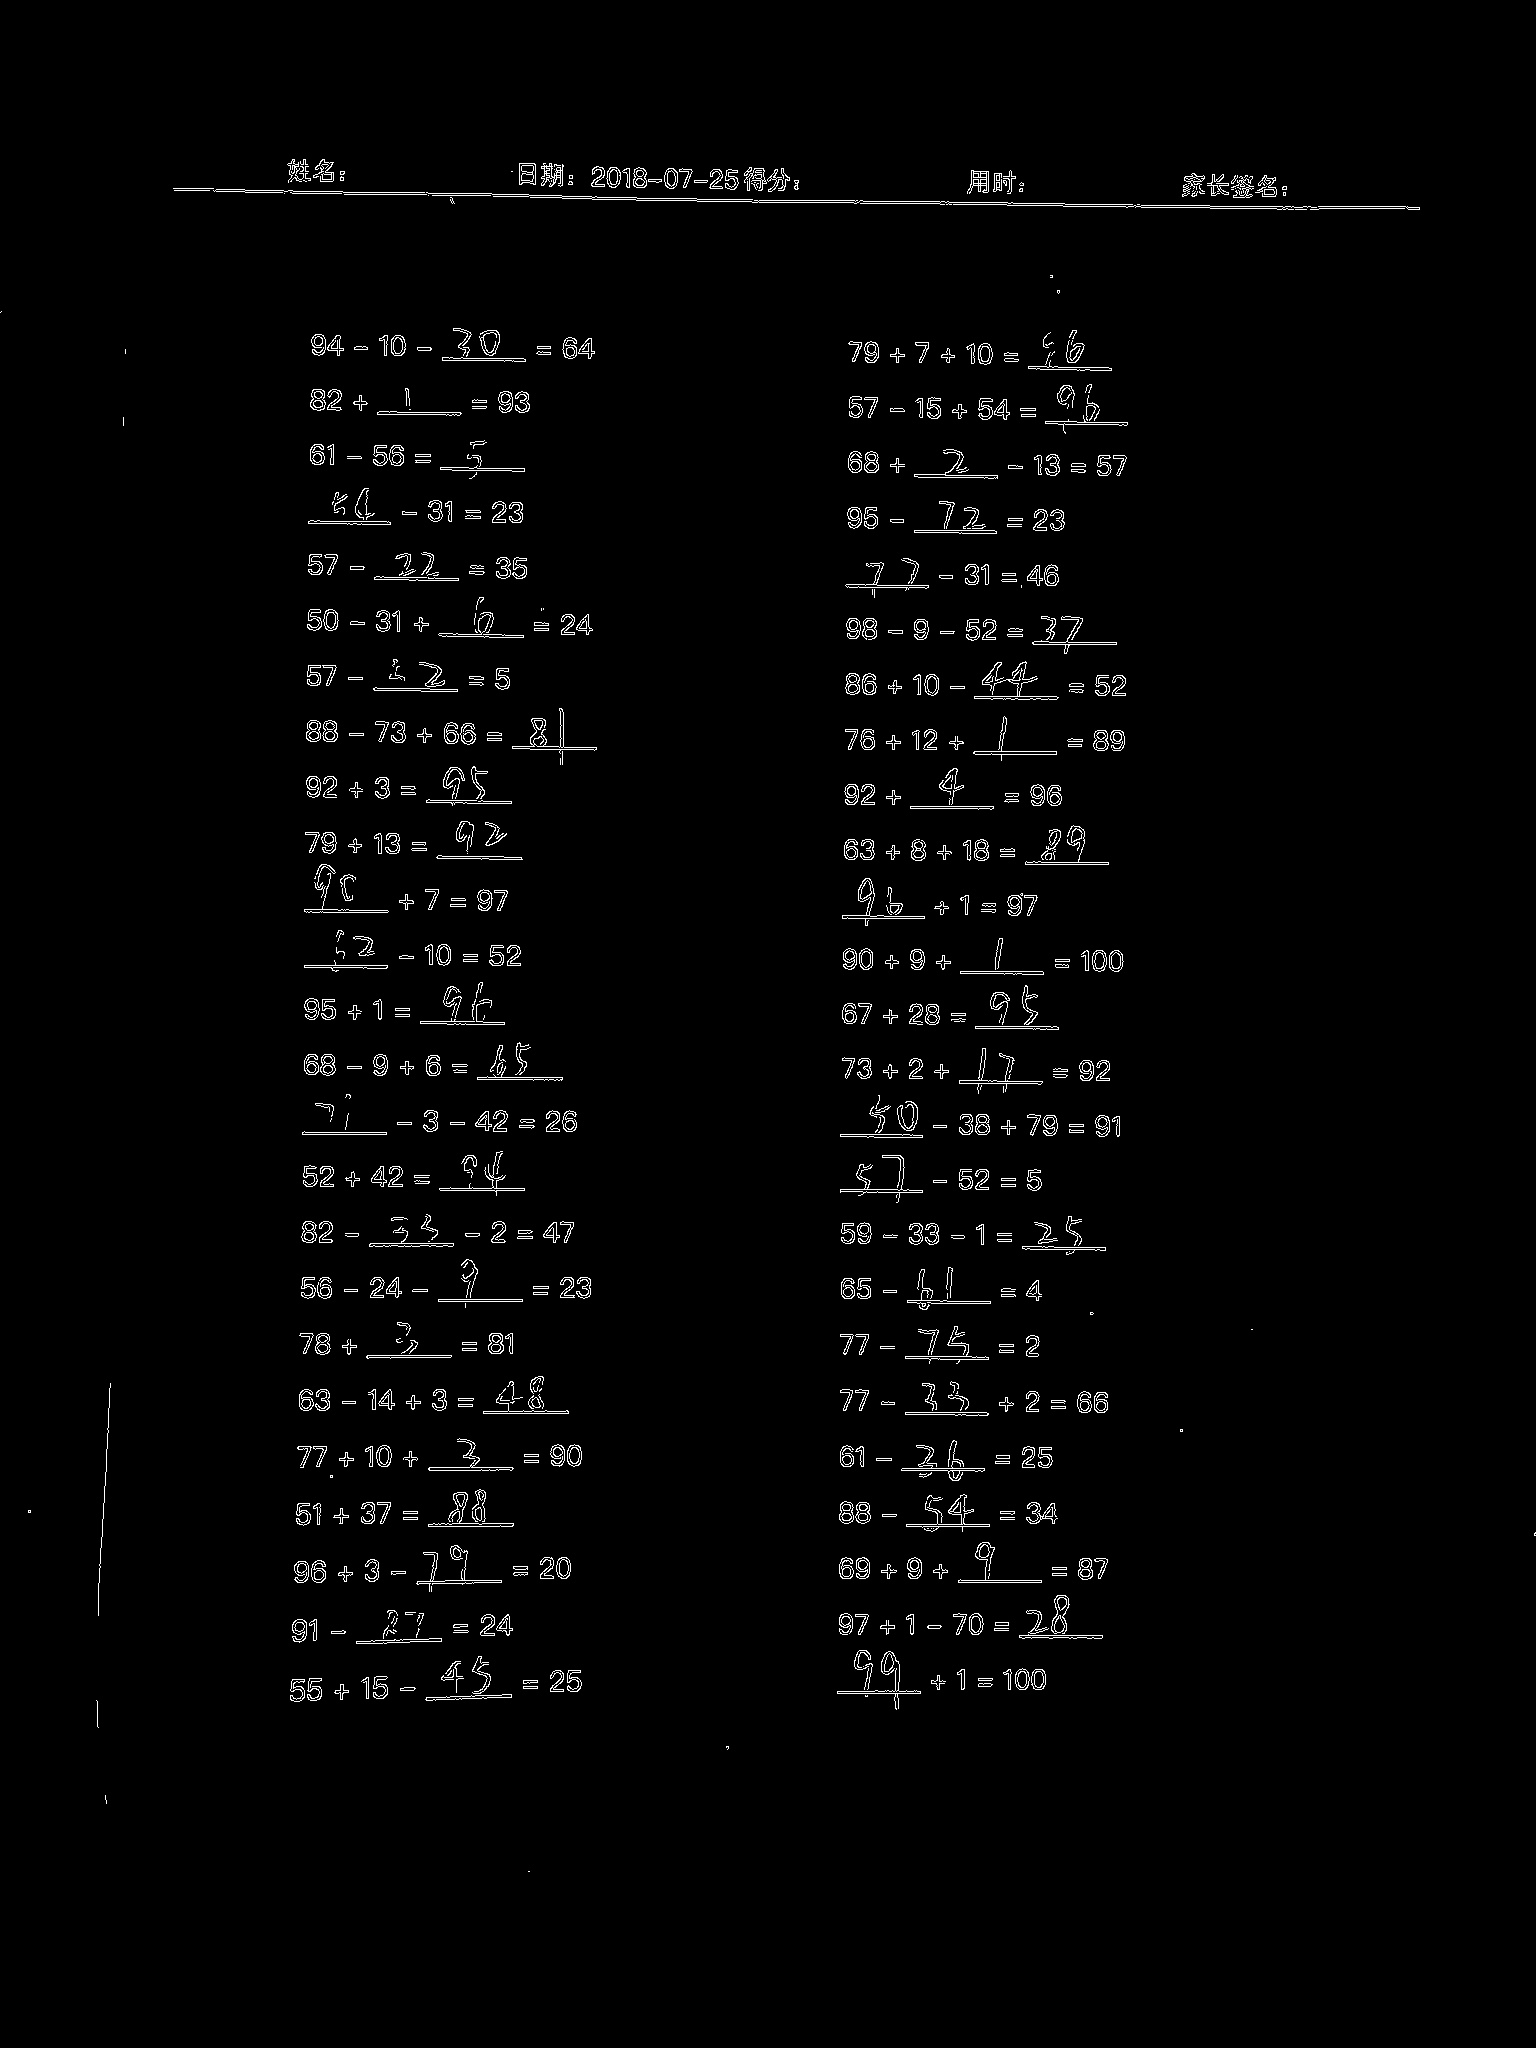 姓名： 日期：2018-07-25 得分： 用时： 家长签名：
94 - 10 - 30 = 64
82 + 1 = 93
61 - 56 = 5
54 - 31 = 23
57 - 22 = 35
50 - 31 + 6 = 24
57 - 52 = 5
88 - 73 + 66 = 81
92 + 3 = 95
79 + 13 = 92
90 + 7 = 97
62 - 10 = 52
95 + 1 = 96
68 - 9 + 6 = 65
71 - 3 - 42 = 26
52 + 42 = 94
82 - 33 - 2 = 47
56 - 24 - 9 = 23
78 + 3 = 81
63 - 14 + 3 = 48
77 + 10 + 3 = 90
51 + 37 = 88
96 + 3 - 79 = 20
91 - 27 = 24
55 + 15 - 45 = 25
79 + 7 + 10 = 96
57 - 15 + 54 = 96
68 + 2 - 13 = 57
95 - 72 = 23
77 - 31 = 46
98 - 9 - 52 = 37
86 + 10 - 44 = 52
76 + 12 + 1 = 89
92 + 4 = 96
63 + 8 + 18 = 89
96 + 1 = 97
90 + 9 + 1 = 100
67 + 28 = 95
73 + 2 + 17 = 92
50 - 38 + 79 = 91
57 - 52 = 5
59 - 33 - 1 = 25
65 - 61 = 4
77 - 75 = 2
77 - 33 + 2 = 66
61 - 36 = 25
88 - 54 = 34
69 + 9 + 9 = 87
97 + 1 - 70 = 28
99 + 1 = 100